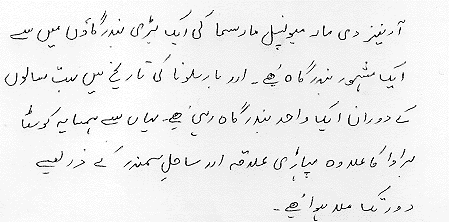 آرینیز دی مار میونسپل مارسما کی ایک بڑی بندرگاؤں میں سے
ایک مشہور بندرگاہ ہے۔ اور بارسلونا کی تاریخ میں بہت سالوں
کے دوران ایک واحد بندرگاہ رہی ہے۔ یہاں سے ہمسایہ کوسٹا
براوا کا علاوہ پہاڑی علاقہ اور ساحلِ سمندر کے ذریعے
دور تک ملا ہوا ہے۔